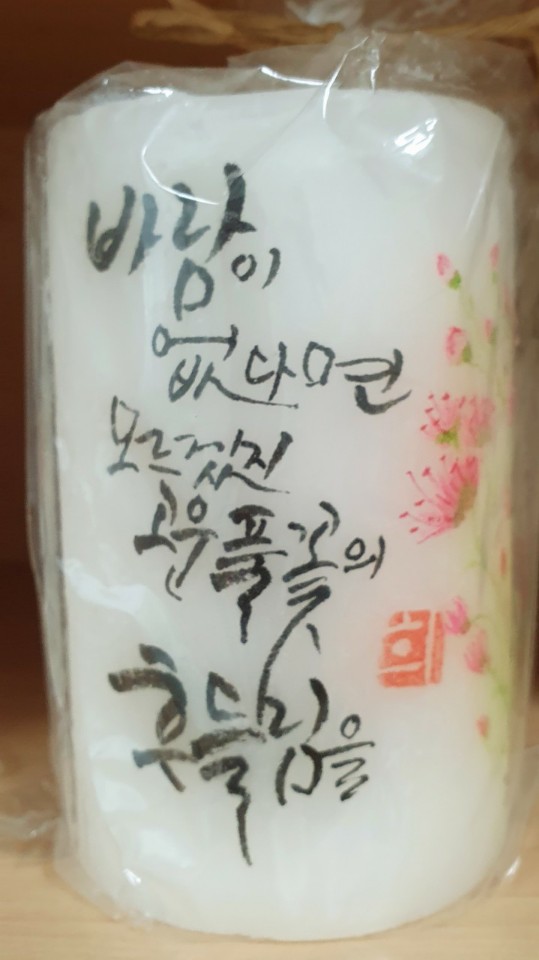 바람이
없다면
모르겠지
고운 풀꽃의
흐들림을